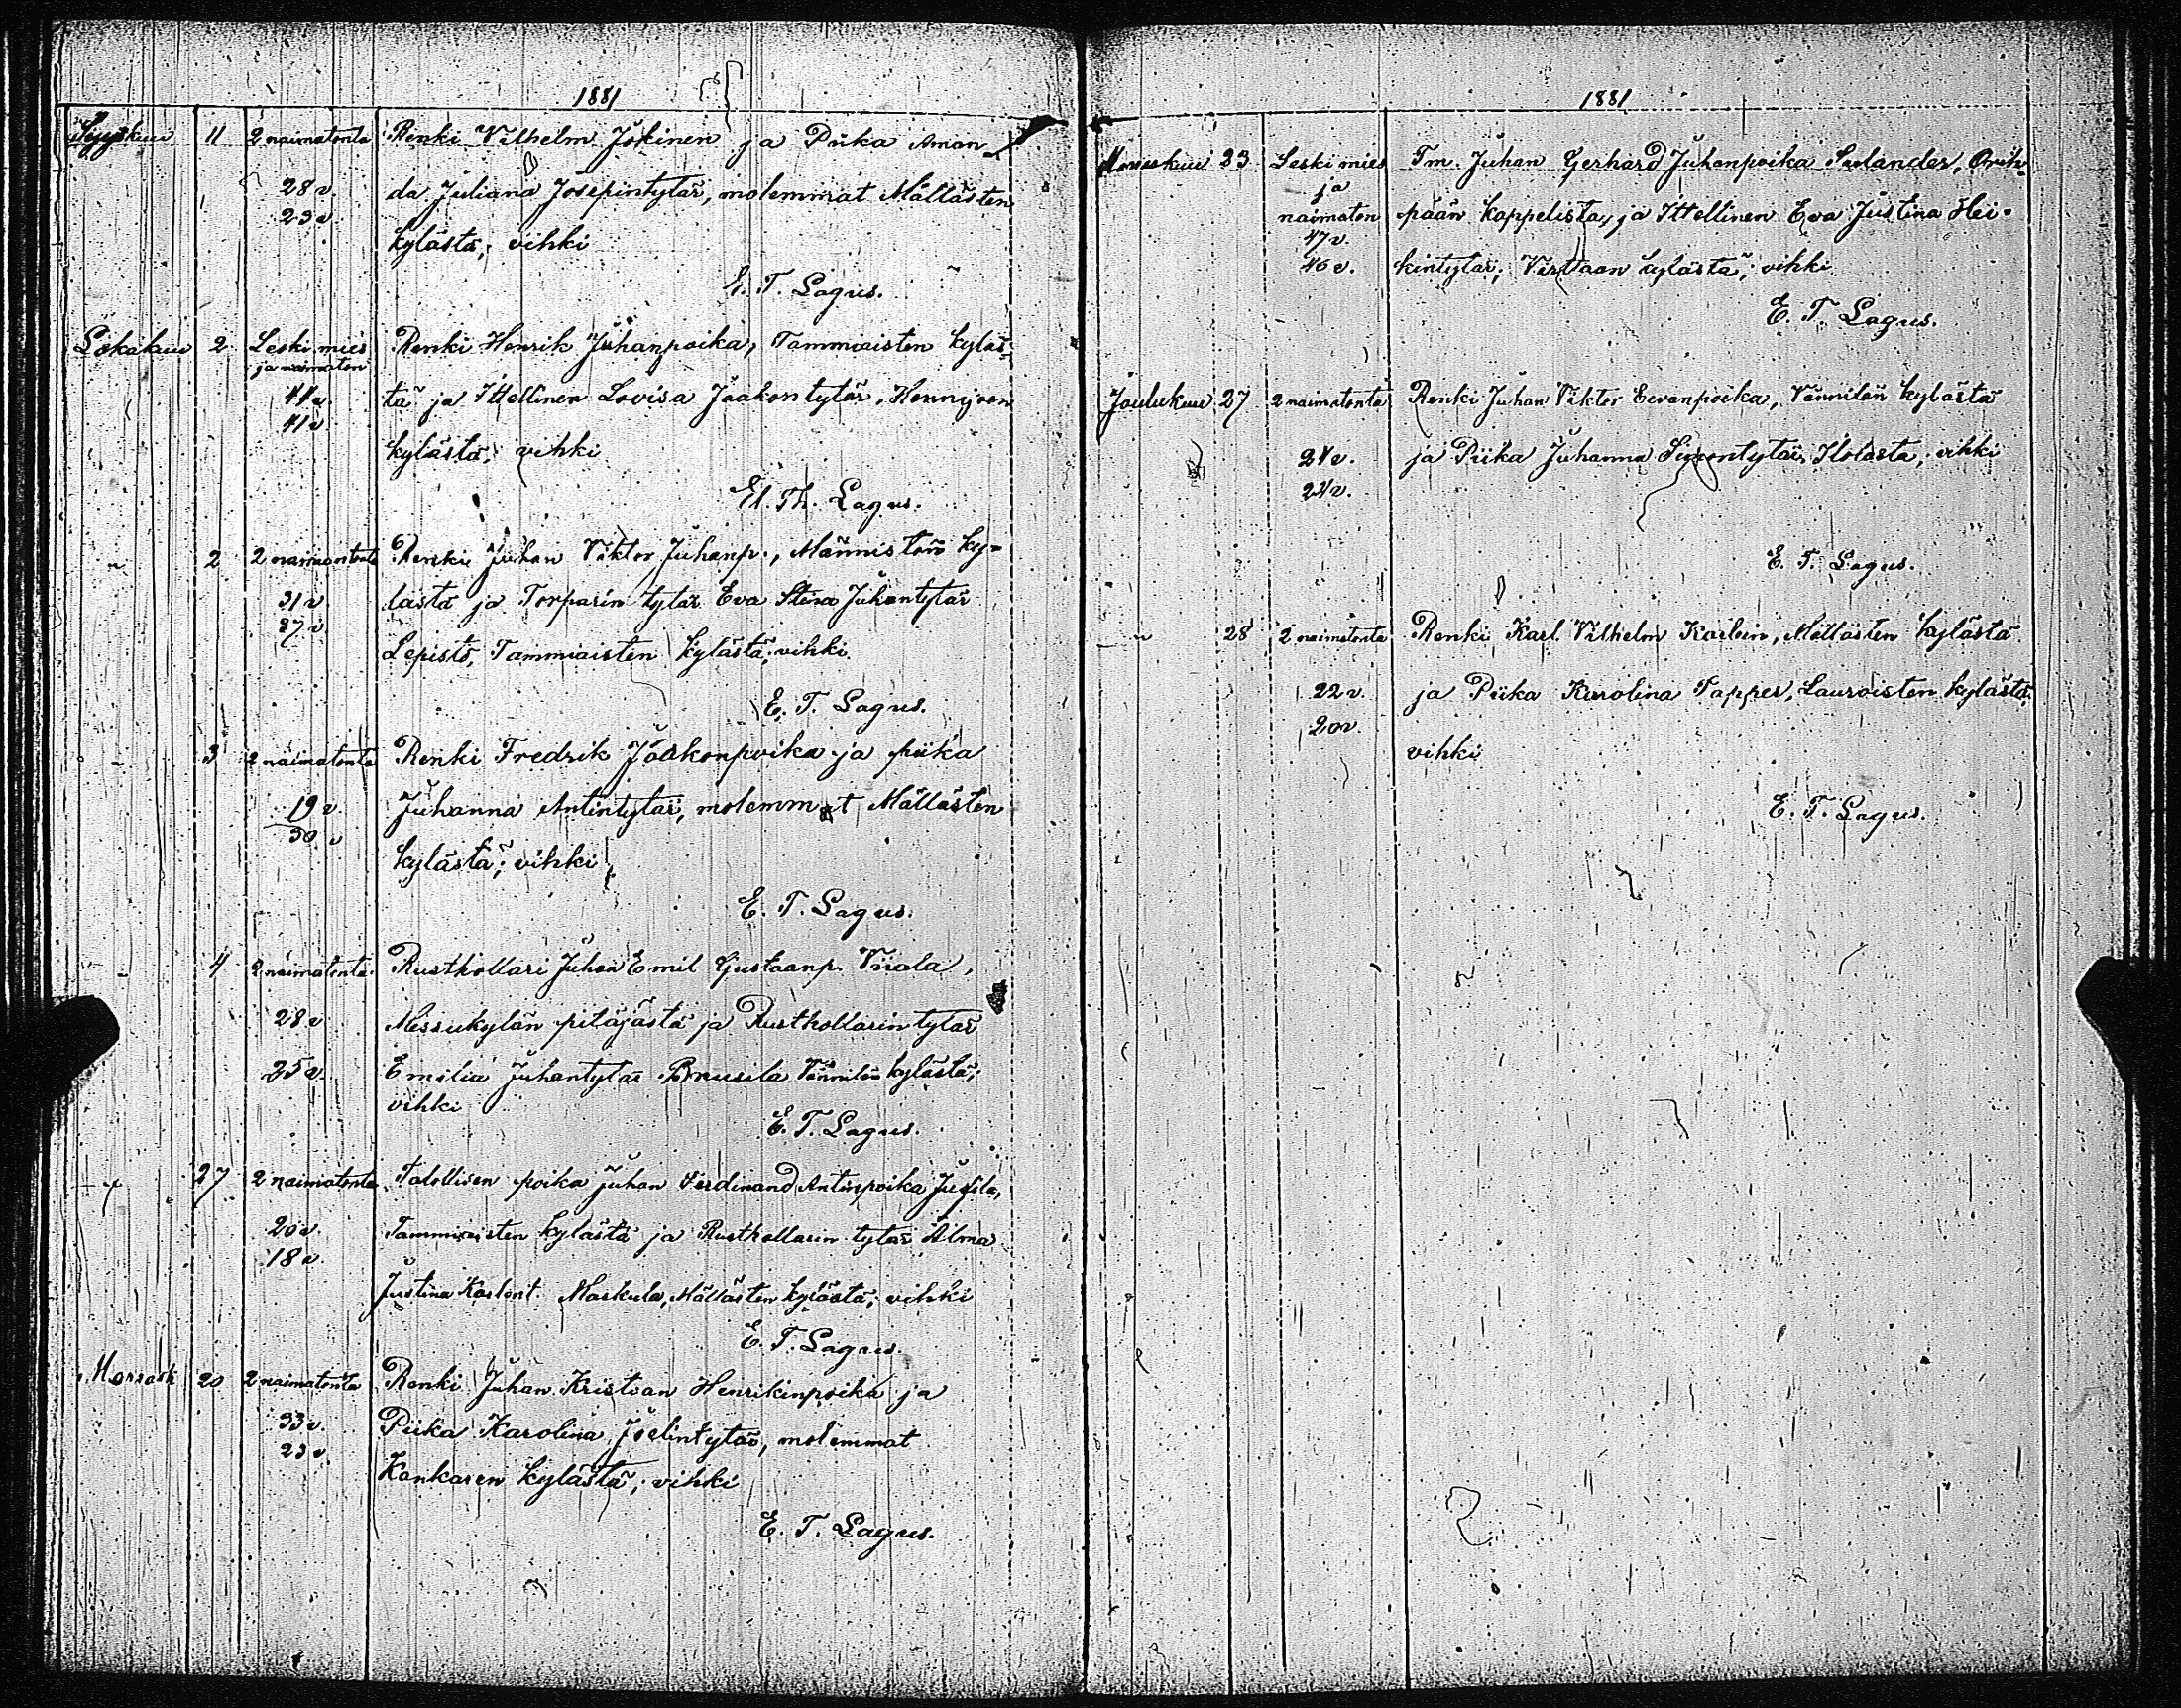 1881
Syyskuu 11 2 naimatonta Renki Vilhelm Jokinen ja Piika Aman-
28 v. da Juliana Josepintytär, molemmat Mällästen
23 v. kylästä; vihki
E. T. Lagus.
Lokakuu 2 Leski mies Renki Henrik Juhanpoika, Tammiaisten kyläs-
ja naimaton
44 v. tä ja Ittellinen Lovisa Jaakontytär, Hennijoen
41 v.
kylästä; vihki
El. Th. Lagus.
" 2 2 naimatonta Renki Juhan Viktor Juhanp., Männistön ky-
31 v. lästä ja Torparin tytär Eva Stina Juhantytär
27 v. Lepistö, Tammiaisten kylästä; vihki
E. T. Lagus.
3 2 naimatonta Renki Fredrik Jaakonpoika ja piika
19 v. Juhanna Antintytär, molemmat Mällästen
30 v
kylästä; vihki
E. T. Lagus.
4 2 naimatonta Rusthollari Juhan Emil Gustaanp. Viiala,
28 v Messukylän pitäjästä ja Rusthollarin tytär
25 v. Emilia Juhantytär Prusila Vännilän kylästä;
vihki
E. T. Lagus.
27 2 naimatonta Talollisen poika Juhan Ferdinand Antinpoika Jusila,
20 v. Tammiaisten kylästä ja Rusthollarin tytär Alma
18 v.
Justina Kaslent. Maskula, Mällästen kylästä; vihki
E. T. Lagus.
Marrask 20 2 naimatonta Renki Juhan Kristian Henrikinpoika ja
33 v. Piika Karolina Joelintytär, molemmat
23 v.
Kankaren kylästä; vihki
E. T. Lagus.
1881
23 Leski mies Tm. Juhan Gerhard Juhanpoika Salander, Orih-
ja
naimaton pään kappelista, ja Ittellinen Eva Justina Hei-
47 v.
46 v. kintytär, Virttaan kylästä; vihki
E. T. Lagus.
Joulukuu 27 2 naimatonta Renki Juhan Viktor Eevanpoika, Vännilän kylästä
24 v. ja Piika Juhanna Simontytär, vihki
24 v.
E. T. Lagus.
" 28 2 naimatonta Renki Karl Vilhelm Mällästen kylästä
22 v. ja Piika Karolina Tapper, Lauroisten kylästä;
20 v. vihki
E. T. Lagus.